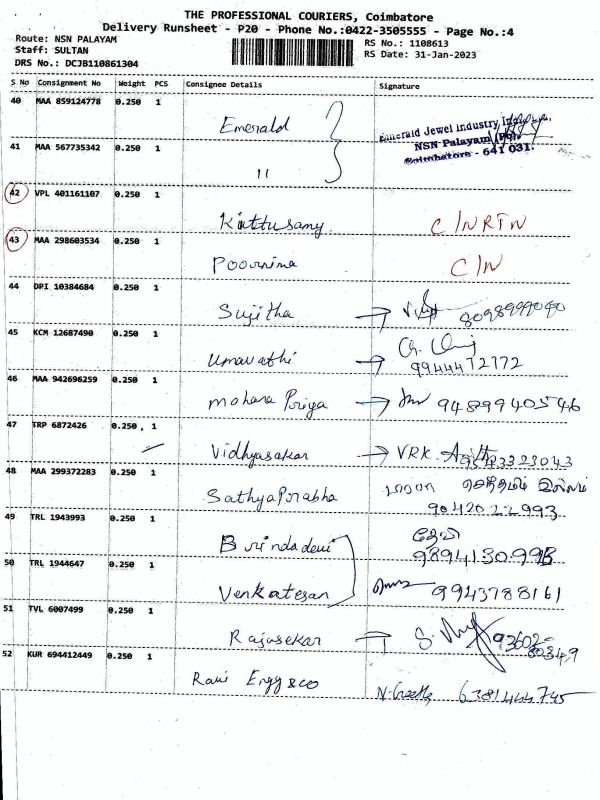 THE PROFESSIONAL COURIERS, Coimbatore
Delivery Runsheet - P20 - Phone No.:0422-3505555 - Page No.:4
Route: NSN PALAYAM
RS No.: 1108613
Staff: SULTAN
RS Date: 31-Jan-2023
DRS No.: DCJB110861304
S No Consignment No Weight PCS Consignee Details Signature
40 MAA 859124778 0.250 1
Emerald
Emerald Jewel Industry
NSN Palayam (Po)
Coimbatore - 641 031.
41 MAA 567735342 0.250 1
11
42 VPL 401161107 0.250 1
Kittusamy C/N RTN
43 MAA 298603534 0.250 1
Poornima C/N
44 DPI 10384684 0.250 1
Sujitha 8098999090
45 KCM 12687490 0.250 1
Umavathi
9944472772
46 MAA 942696259 0.250 1
Mohana Priya 9489940546
47 TRP 6872426 0.250 1
Vidhyasakar VRK
48 MAA 299372283 0.250 1
SathyaPrabha இல்லம்
9042022993
49 TRL 1943993 0.250 1
Brindadevi தேவி
50 TRL 1944647 0.250 1
Venkatesan 9943788161
51 TVL 6007499 0.250 1
Rajasekar
52 KUR 694412449 0.250 1
Ravi Engg & co 6381444745